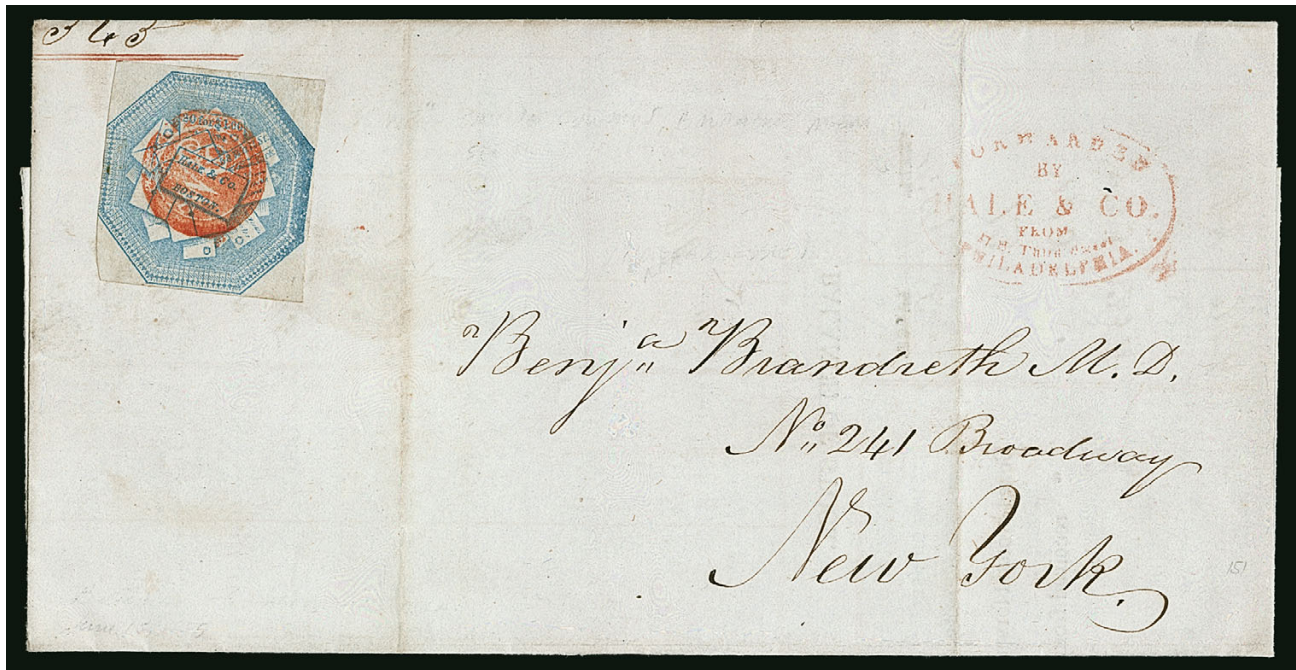 345
HALE & CO.
BOSTON.
FORWARDED
BY
HALE & CO.
FROM
Third Street
PHILADELPHIA.
Benjª Brandreth M. D.
No 241 Broadway
New York.
151